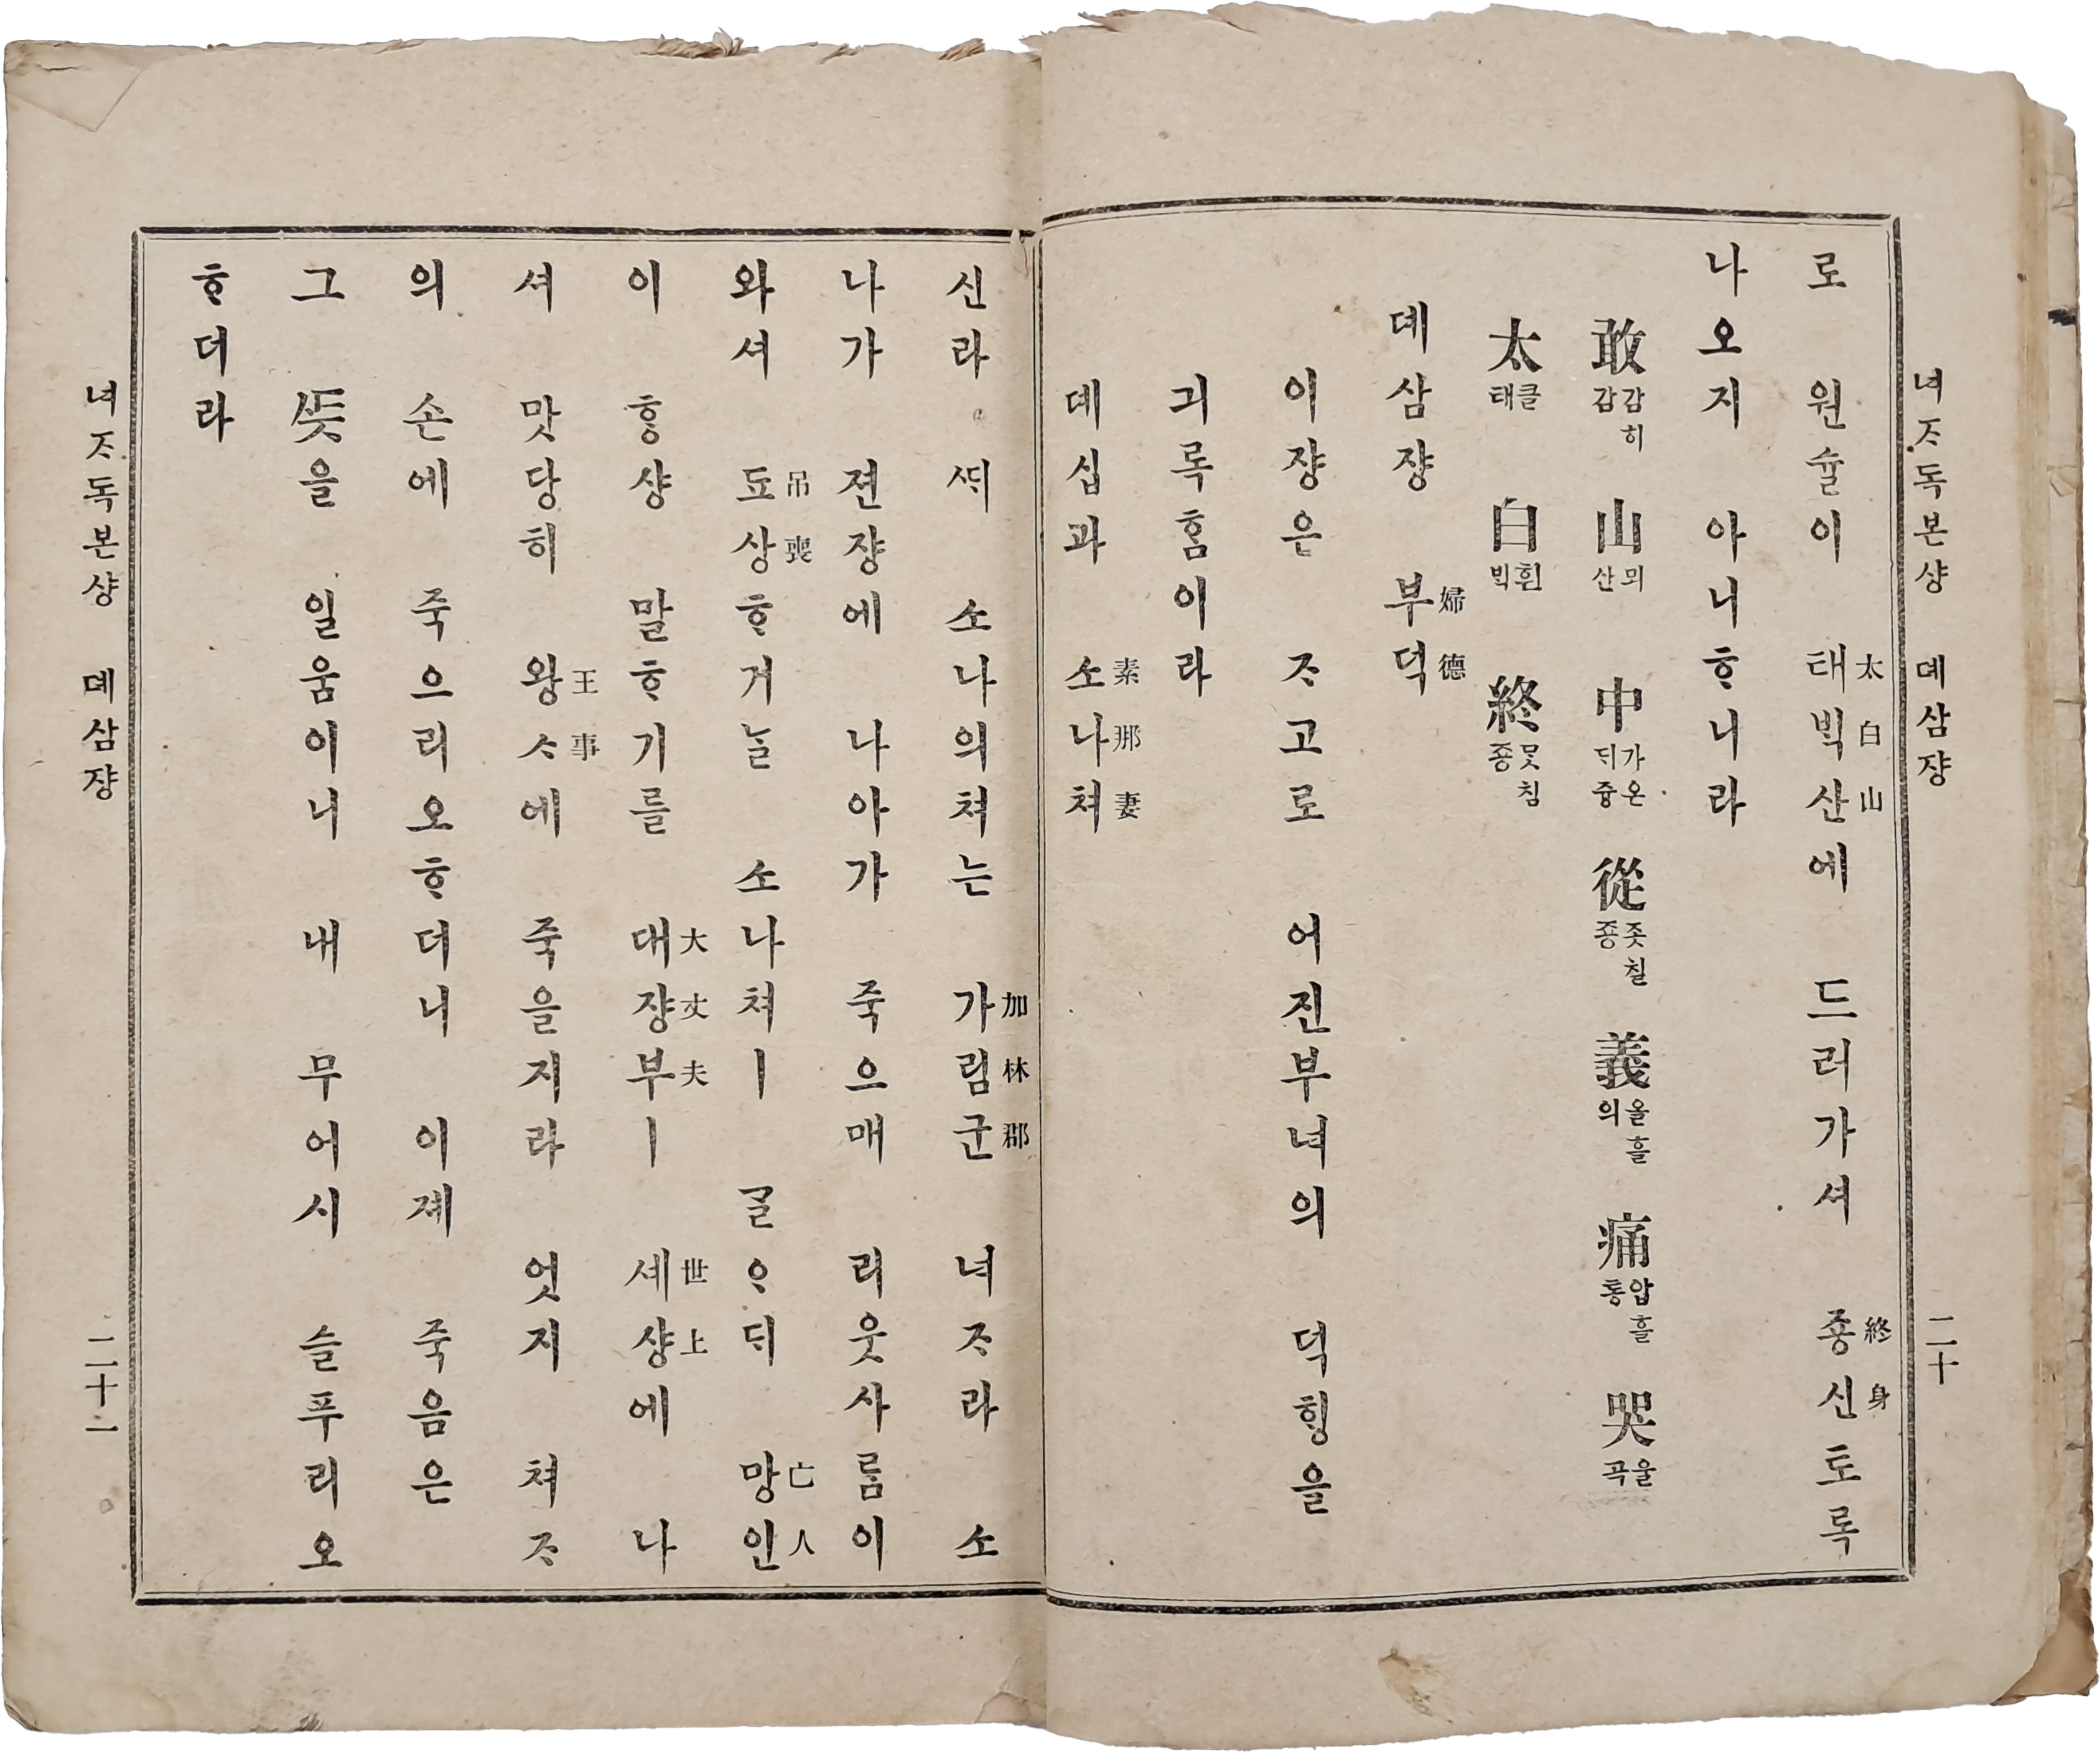 녀ᄌᆞ독본샹 뎨삼쟝 二十
로 원슐이 태ᄇᆡᆨ산에 드러가셔 죵신토록
太白山 終身
나오지 아니ᄒᆞ니라
敢 감히 감 山 뫼 산 中 가온ᄃᆡ 즁 從 좃칠 죵 義 올흘 의 痛 압흘 통 哭 울 곡
太 클 태 白 흰 ᄇᆡᆨ 終 ᄆᆞᆺ침 죵
뎨삼쟝 부덕
婦德
이쟝은 ᄌᆞ고로 어진부녀의 덕ᄒᆡᆼ을
긔록ᄒᆞᆷ이라
뎨십과 소나쳐
素那妻
신라 ᄯᆡ 소나의쳐는 가림군 녀ᄌᆞ라 소
加林郡
나가 젼쟝에 나아가 죽으매 리웃사ᄅᆞᆷ이
와셔 됴상ᄒᆞ거ᄂᆞᆯ 소나쳐ㅣ ᄀᆞᆯᄋᆞᄃᆡ 망인
吊喪 亡人
이 ᄒᆞᆼ샹 말ᄒᆞ기를 대쟝부ㅣ 셰샹에 나
大丈夫 世上
셔 맛당히 왕ᄉᆞ에 죽을지라 엇지 쳐ᄌᆞ
王事
의 손에 죽으리오ᄒᆞ더니 이졔 죽음은
그 ᄯᅳᆺ을 일움이니 내 무어시 슬푸리오
ᄒᆞ더라
녀ᄌᆞ독본샹 뎨삼쟝 二十一